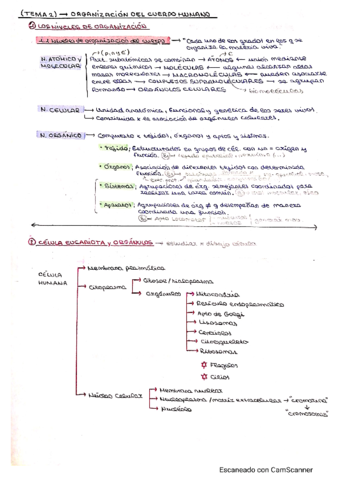 (TEMA 2) → ORGANIZACIÓN DEL CUERPO HUMANO
① LOS NIVELES DE ORGANIZACIÓN
1.1 Niveles de organización del cuerpo → "Cada uno de los grados en los q se
organiza la materia viva"
(p, n, e⁻)
N. ATÓMICO Y → Part. subatómicas se combinan → ÁTOMOS → unen mediante
MOLECULAR enlaces químicos → MOLÉCULAS → algunas alcanzan
→ MACROMOLÉCULAS → pueden asociarse
entre ellas → COMPLEJOS SUPRAMOLECULARES → se agrupan
formando → ORGÁNULOS CELULARES
biomoléculas
N. CELULAR → Unidad anatómica, funcional y genética de los seres vivos
→ Constituida x la asociación de orgánulos celulares.
N. ORGÁNICO → Compuesto x tejidos, órganos y aptos y sistemas.
• Tejido: Estructurados en grupos de cél. con un = origen y
función.
• Órganos: Asociación de diferentes tejidos con determinada
función.
• Sistemas: Agrupaciones de órg. semejantes coordinadas para
realizar una tarea común.
• Aparatos: Agrupaciones de órg ≠ q desempeñan de manera
coordinada una función.
② CÉLULA EUCARIOTA Y ORGÁNULOS →
CÉLULA
HUMANA
→ Membrana plasmática
→ Citoplasma
→ Citosol / hialoplasma
→ Orgánulos
→ Mitocondria
→ Retículo endoplasmático
→ Apto de Golgi
→ Lisosomas
→ Centriolos
→ Citoesqueleto
→ Ribosomas
✡ Flagelos
✡ Cilios
→ Núcleo celular
→ Membrana nuclear
→ Nucleoplasma / matriz → "cromatina"
→ Nucléolo
"cromosomas"
Escaneado con CamScanner